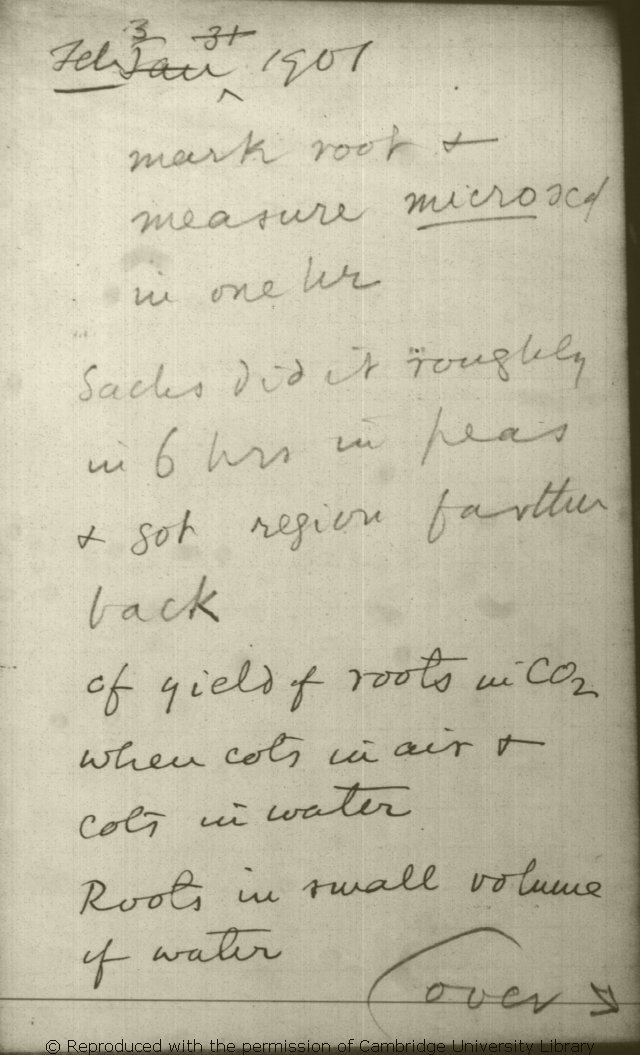 Feb 3 Jan 31 1901
mark root &
measure microscop
in one hr
Sachs did it roughly
in 6 hrs in peas
& got region farther
back
cf yield of roots in CO2
when cots in air &
cots in water
Roots in small volume
of water
over
© Reproduced with the permission of Cambridge University Library